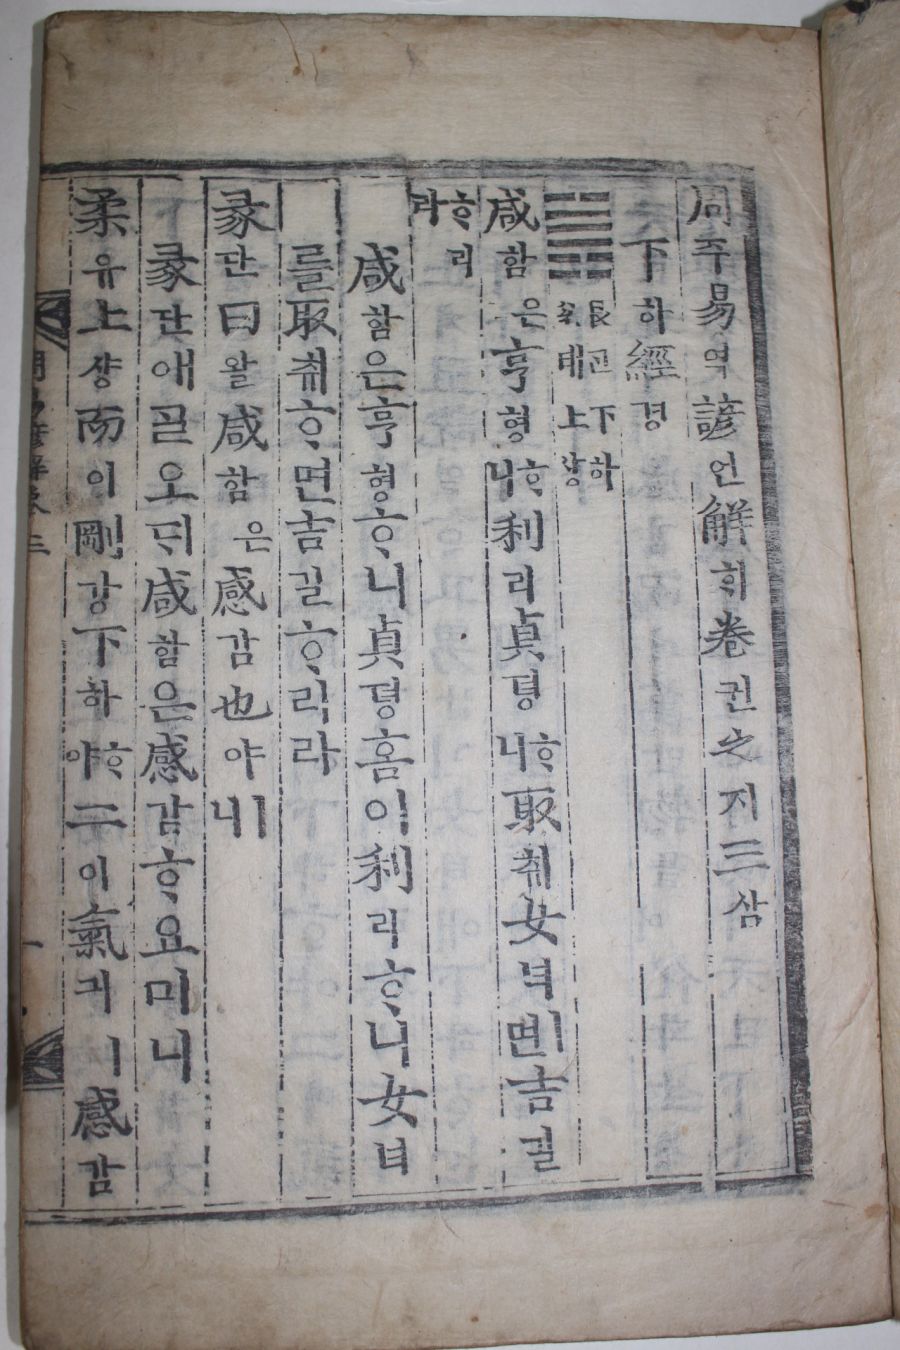 周주易역諺언解ᄒᆡ卷권之지三삼
下하經경
䷞ 艮간下하兌태上샹
咸함은亨형ᄒᆞ니利리貞뎡ᄒᆞ니取ᄎᆔ女녀ㅣ면吉길
ᄒᆞ리라
咸함은亨형ᄒᆞ니貞뎡홈이利리ᄒᆞ니女녀
를取ᄎᆔᄒᆞ면吉길ᄒᆞ리라
彖단曰왈咸함은感감也야ㅣ니
彖단애ᄀᆞᆯ오ᄃᆡ咸함은感감ᄒᆞ요미니
柔유上샹而이剛강下하ᄒᆞ야二이氣긔ㅣ感감
周易諺解卷三
一